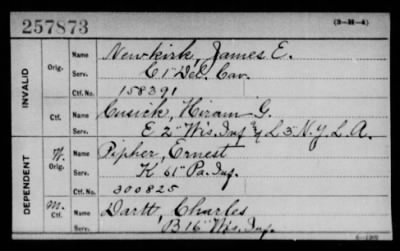 257873
(3-M-4)
INVALID
Orig.
Name Newkirk, James E.
Serv. C 1" Del. Cav.
Ctf. No. 158391
Ctf.
Name Cusick, Hiram G.
Serv. E 2" Wis. Inf & L 5" N.Y. L. A.
DEPENDENT
W. Orig.
Name Pipher, Ernest
Serv. K 61" Pa. Inf.
Ctf. No. 300825
M. Ctf.
Name Dartt, Charles
Serv. B 16" Wis. Inf.